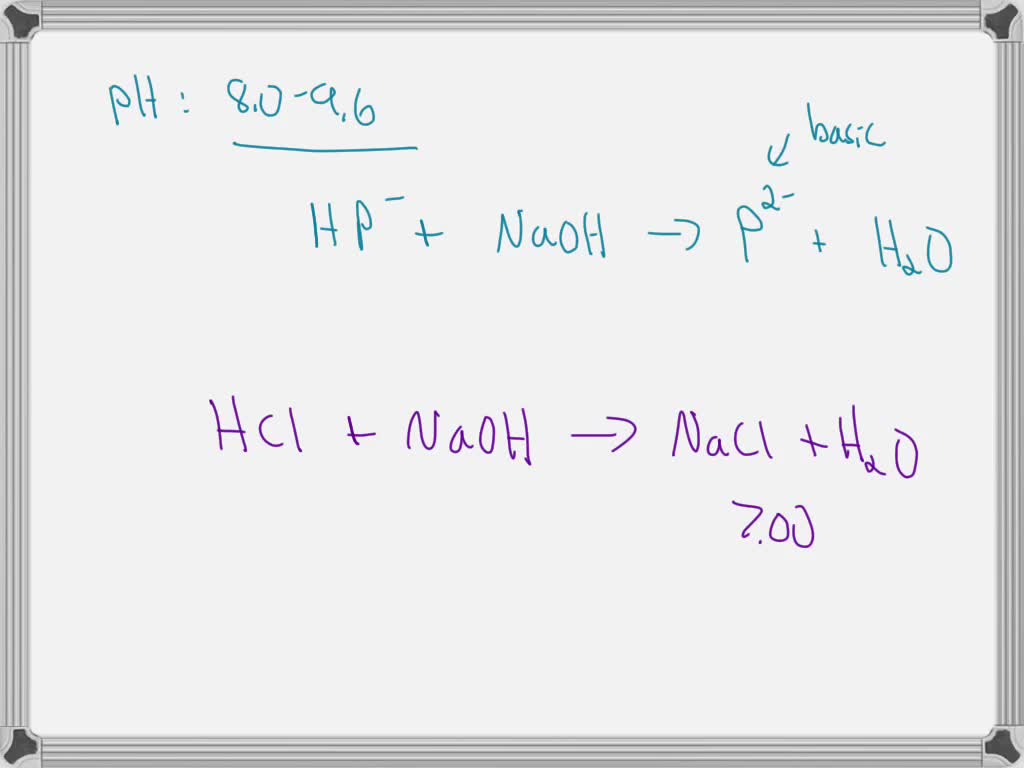 pH : 8.0-9.6
basic
HP⁻ + NaOH → P²⁻ + H₂O
HCl + NaOH → NaCl + H₂O
7.00